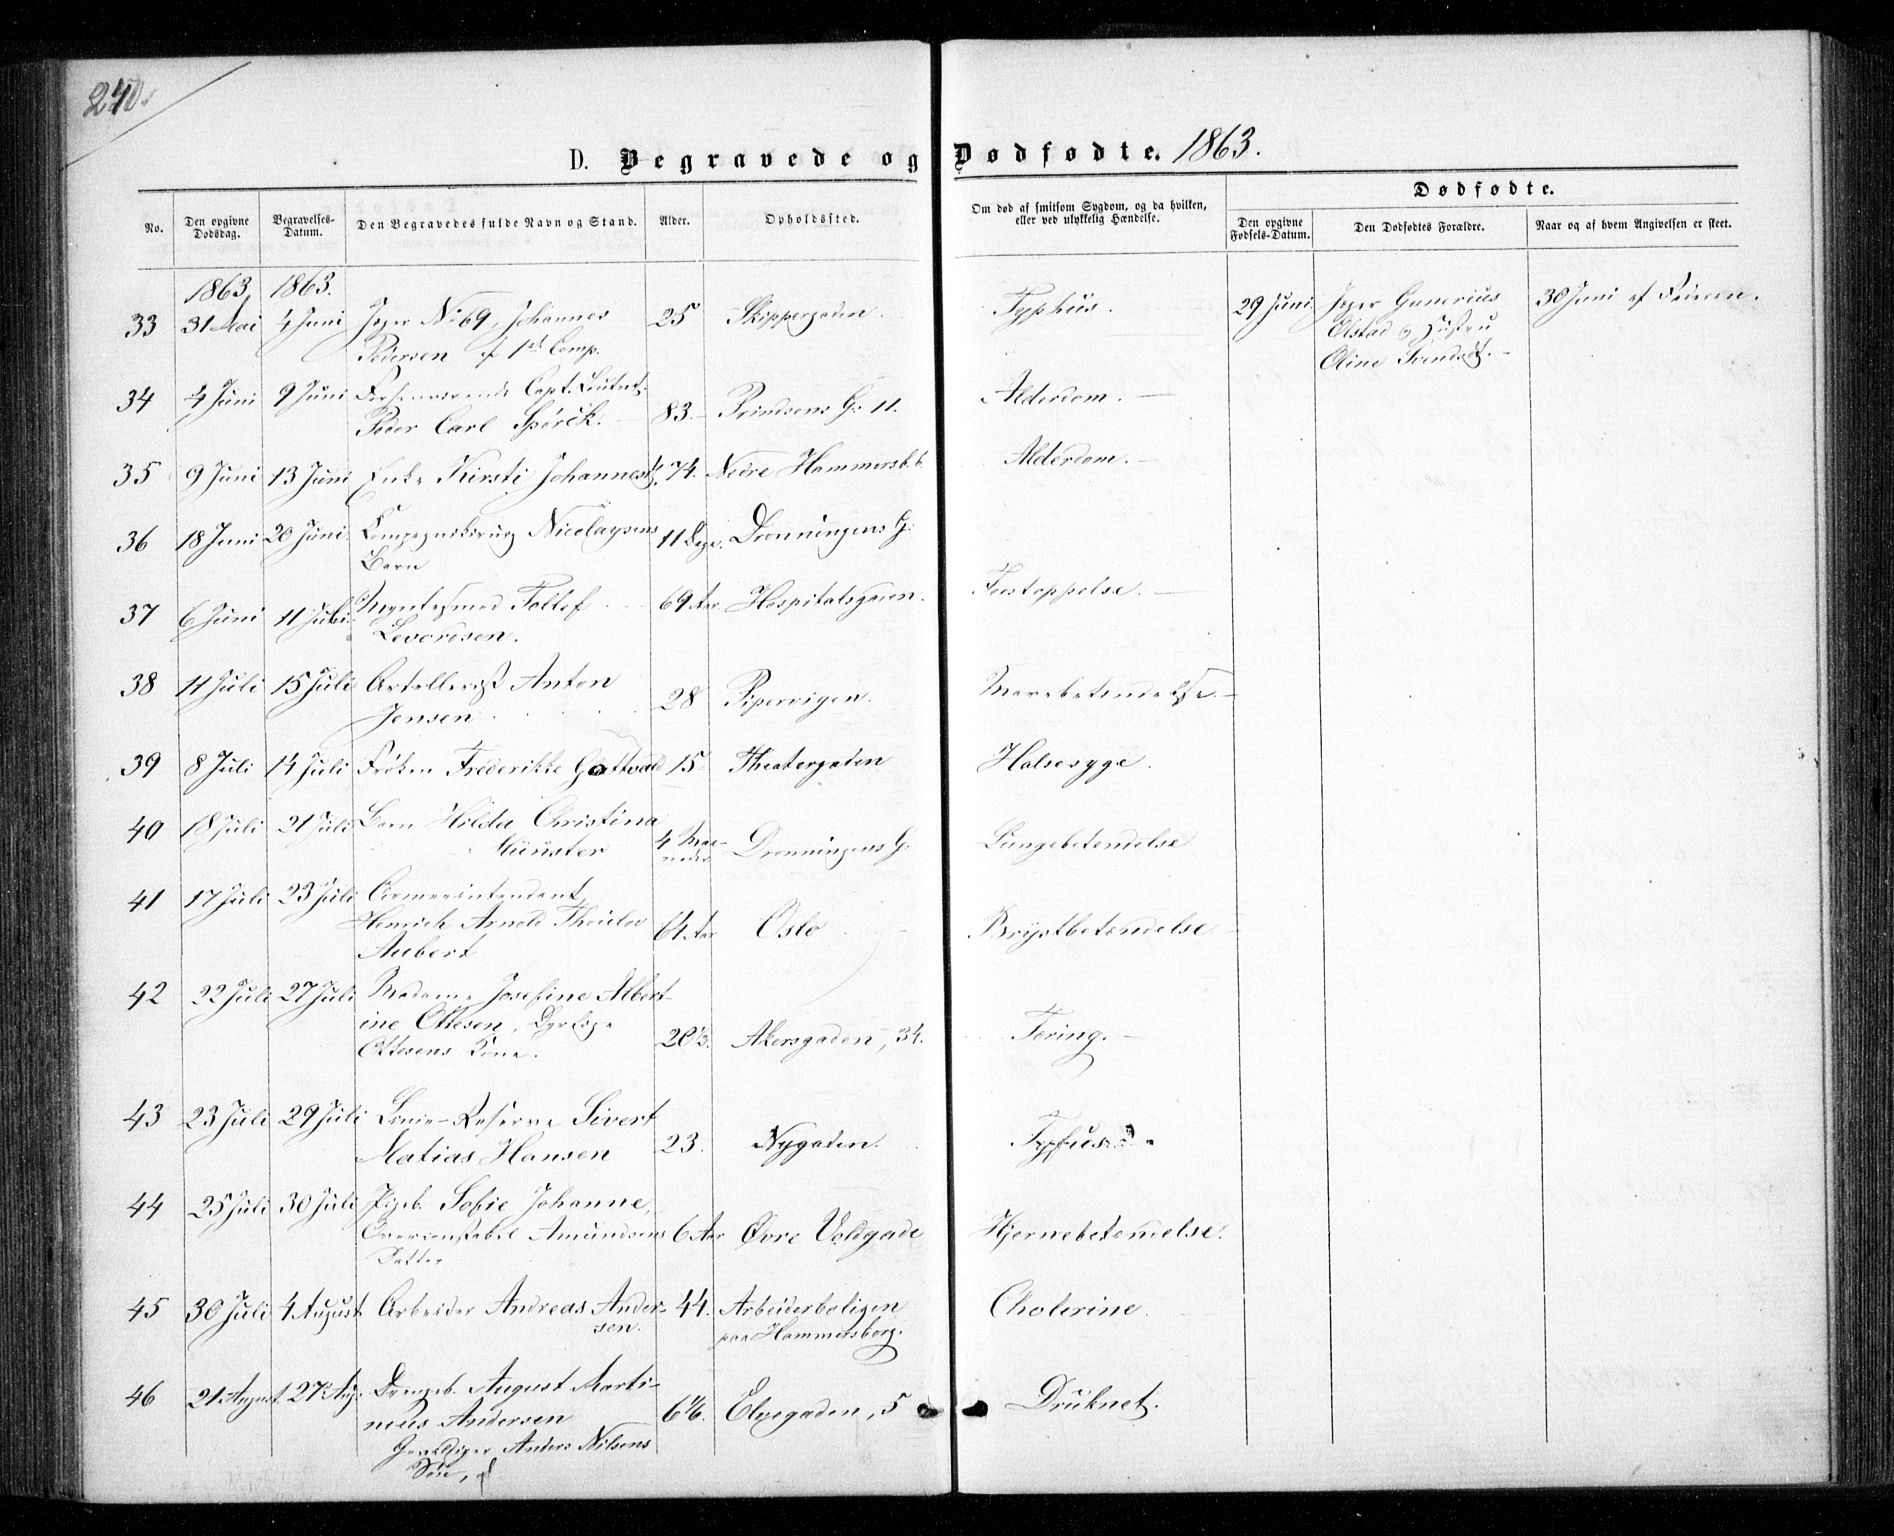 240.
D. Begravede og Dødfødte. 1863.
No.
Den opgivne Dødsdag.
Begravelses-Datum.
Den Begravedes fulde Navn og Stand.
Alder.
Opholdssted.
Om død af smitsom Sygdom, og da hvilken, eller ved ulykkelig Hændelse.
Dødfødte.
Den opgivne Fødsels-Datum.
Den Dødfødtes Forældre.
Naar og af hvem Angivelsen er skeet.
1863 1863.
33 31 Mai 4 Juni Jæger No 69, Johannes 25 Skippergaden. Typhus. 29 Juni Jæger Gunerius 30 Juni af Faderen.
Pedersen af 1ste Comp. Olstad og Hustru
Oline Svendsdt.
34 4 Juni 9 Juni Forhenværende Capt. Leutnt. 83. Prindsens G: 11. Alderdom.
Peder Carl Spørck.
35 9 Juni 13 Juni Enke Kirsti Johannesd. 74. Nedre Hammersb. 6. Alderdom.
36 18 Juni 20 Juni Nicolaysens 11 Dage. Dronningens G:
Barn
37 6 Juni 11 Juli Tollef 69 Aar Hospitalsgaden. Forstoppelse.
Levordsen.
38 11 Juli 15 Juli Artillerist Anton 28 Pipervigen. Mavebetendelse.
Jensen
39 8 Juli 14 Juli Frøken Frederikke Gottwald 15 Theatergaden Halsesyge.
40 18 Juli 21 Juli Barn Hilda Christina 4 Maaneder Dronningens G. Lungebetendelse
Münster
41 17 Juli 23 Juli Armeeintendant
Henrich Arnold Thaulow 61 Aar Oslo Brystbetendelse
Aubert
42 22 Juli 27 Juli Madame Josefine Albert-
ine Ottesen, 20½. Akersgaden, 34. Tæring.
Ottesens Kone.
43 23 Juli 29 Juli Linie-Reserve Sivert
Matias Hansen 23. Nygaden. Typhus
44 25 Juli 30 Juli Pigeb. Sofie Johanne,
Overconstabel Amundsens 6 Aar Øvre Voldgade Hjernebetendelse.
Datter
45 30 Juli 4 August Arbeider Andreas Ander- 44. Arbeiderboligen Cholerine.
sen. paa Hammersborg.
46 21 August 27 Aug. Drengeb. August Marti-
nius Andersen 6⅙. Elvegaden, 5 Druknet.
Anders Nilsens
Søn,